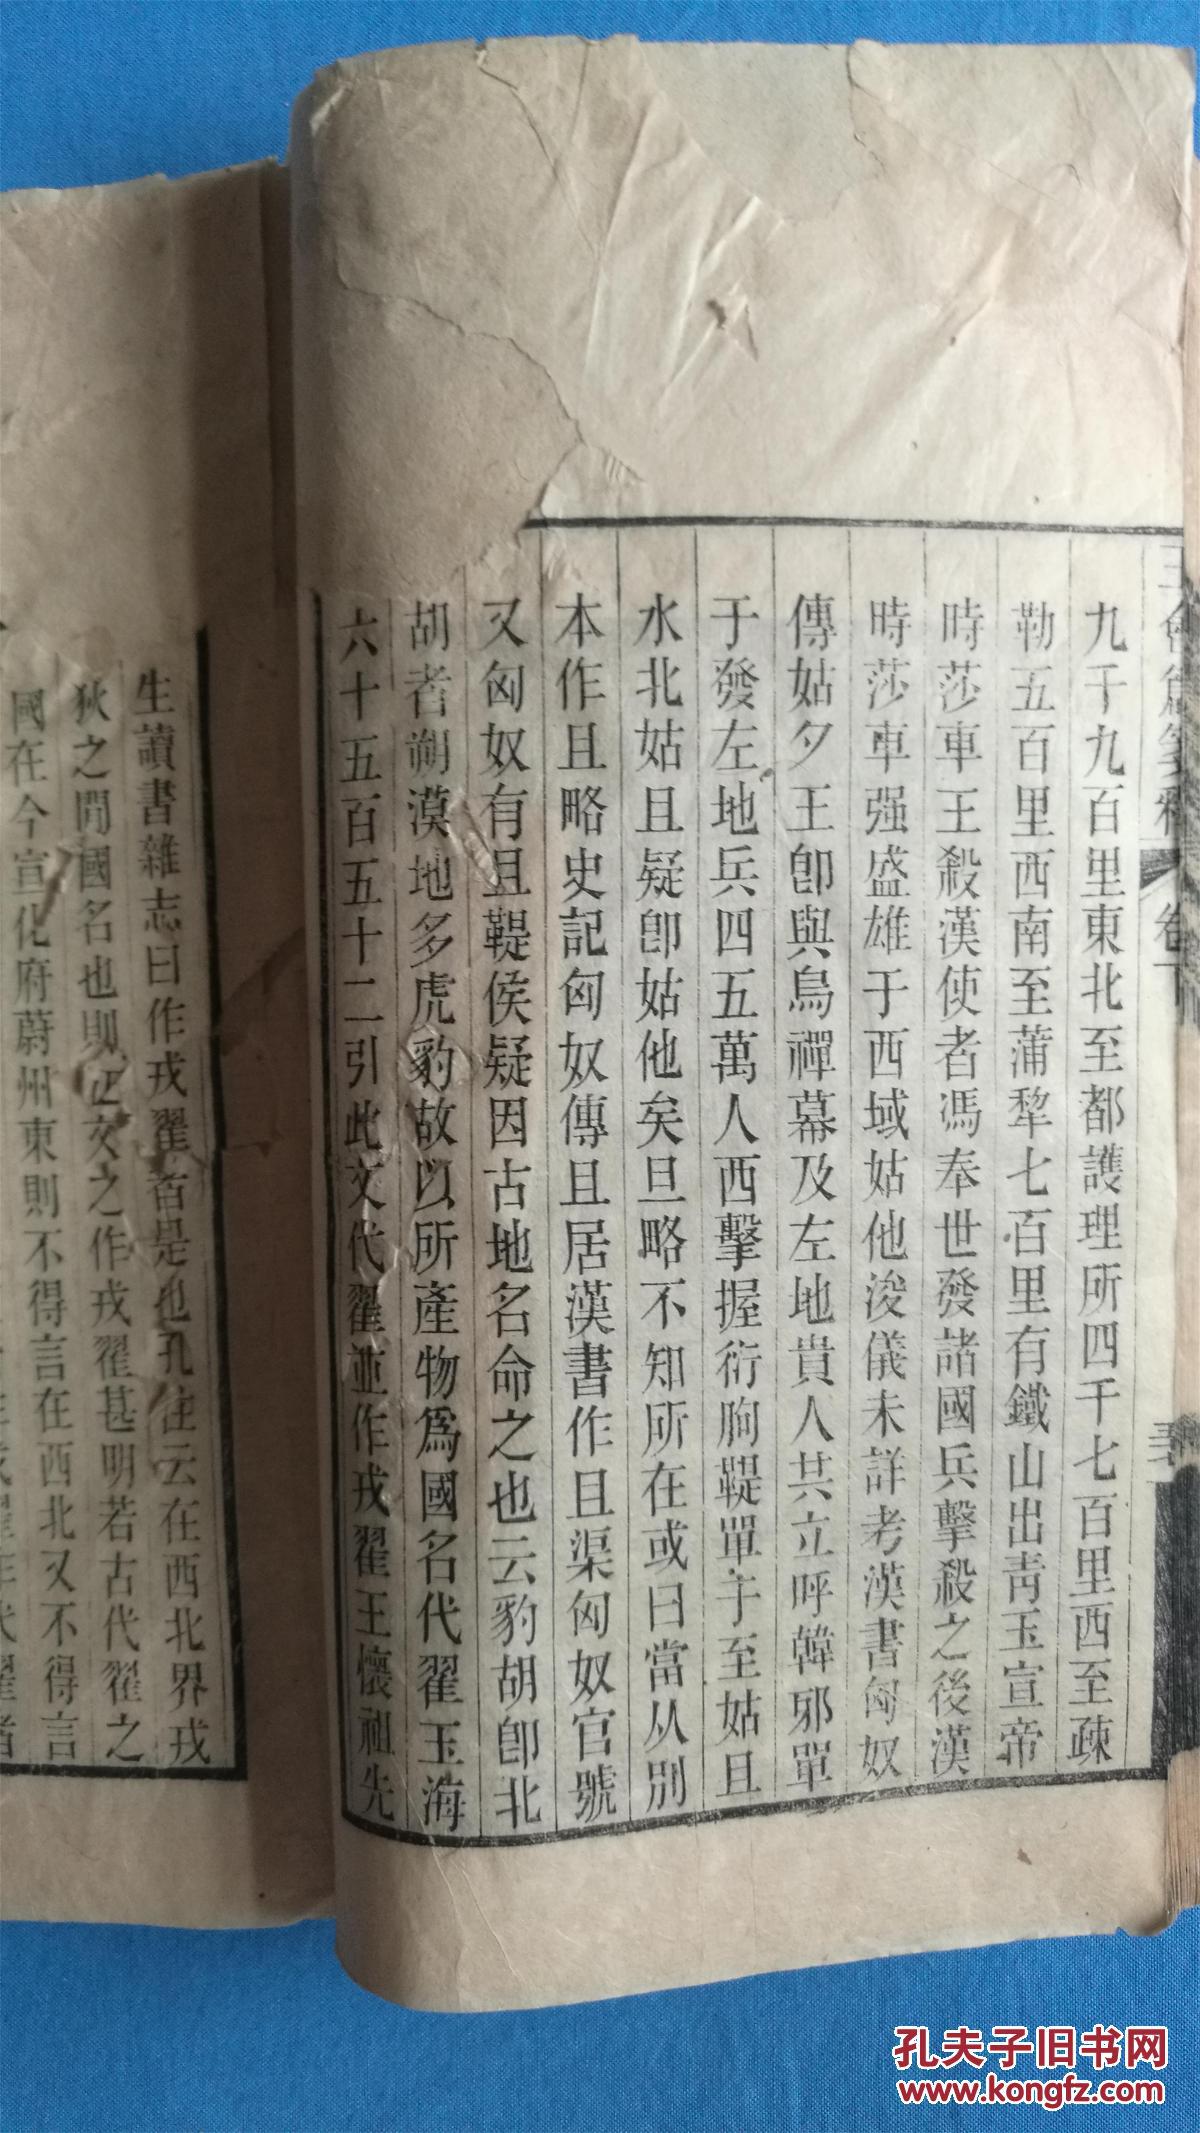 王會篇箋釋 卷下
九千九百里東北至都護理所四千七百里西至疎
勒五百里西南至蒲犂七百里有鐵山出靑玉宣帝
時莎車王殺漢使者馮奉世發諸國兵擊殺之後漢
時莎車强盛雄于西域姑他浚儀未詳考漢書匈奴
傳姑夕王卽與烏禪幕及左地貴人共立呼韓邪單
于發左地兵四五萬人西擊握衍朐鞮單于至姑且
水北姑且疑卽姑他矣旦略不知所在或曰當从別
本作且略史記匈奴傳且居漢書作且渠匈奴官號
又匈奴有且鞮侯疑因古地名命之也云豹胡卽北
胡者朔漠地多虎豹故以所產物爲國名代翟玉海
六十五百五十二引此文代翟並作戎翟王懷祖先
生讀書雜志曰作戎翟者是也孔注云在西北界戎
狄之閒國名也則正文之作戎翟甚明若古代翟之
國在今宣化府蔚州東則不得言在西北又不得言
孔夫子旧书网
www.kongfz.com